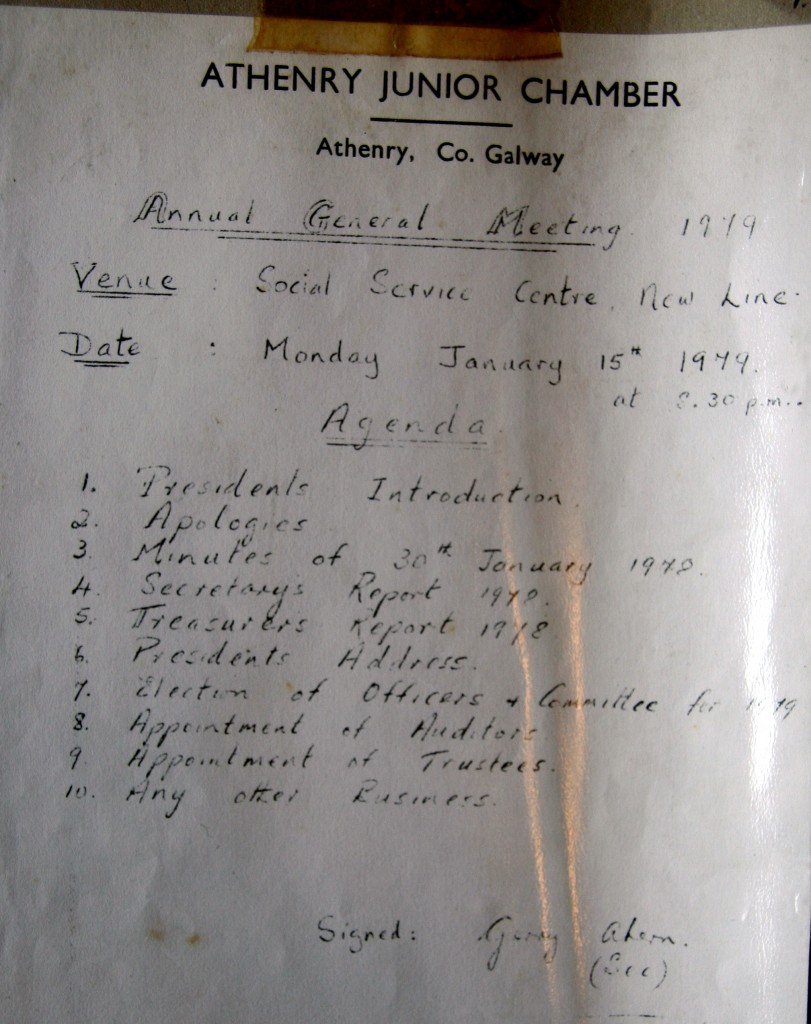 ATHENRY JUNIOR CHAMBER
Athenry, Co. Galway
Annual General Meeting 1979
Venue : Social Service Centre, New Line.
Date : Monday January 15th 1979.
at 8.30 p.m..
Agenda
1. Presidents Introduction.
2. Apologies
3. Minutes of 30th January 1978.
4. Secretarys Report 1978.
5. Treasurers Report 1978
6. Presidents Address.
7. Election of Officers + Committee for 1979
8. Appointment of Auditors.
9. Appointment of Trustees.
10. Any other Business.
Signed: Gerry Ahern.
(Sec)